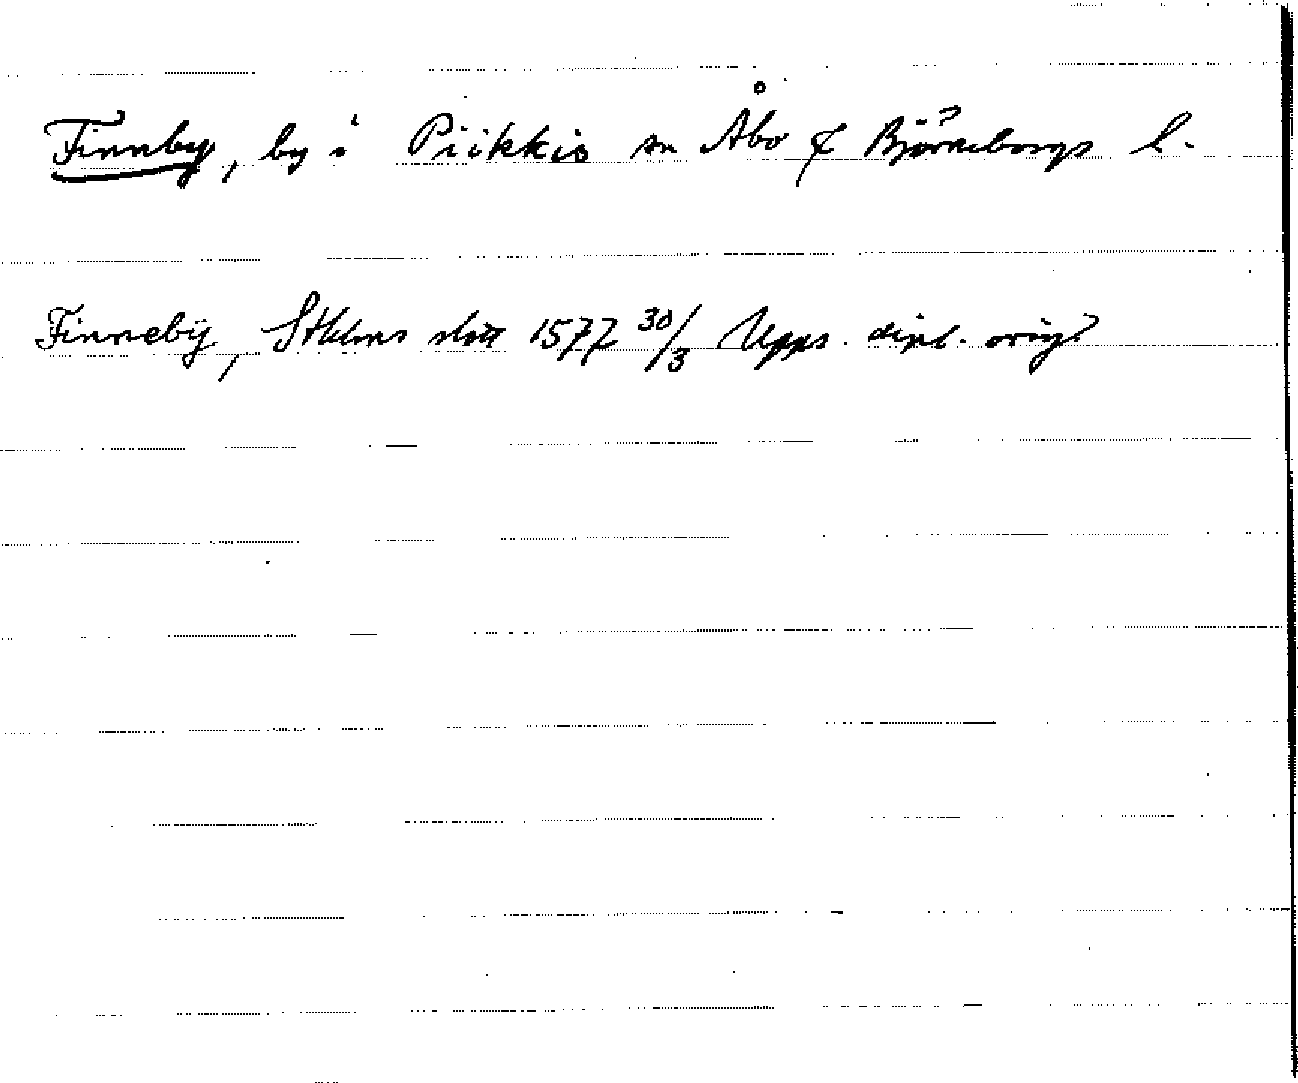 Finnby, by i Piikkis sn Åbo & Björneborgs l.
Finneby, Sthlms slott 1577 30/3 Upps. dipl. orig